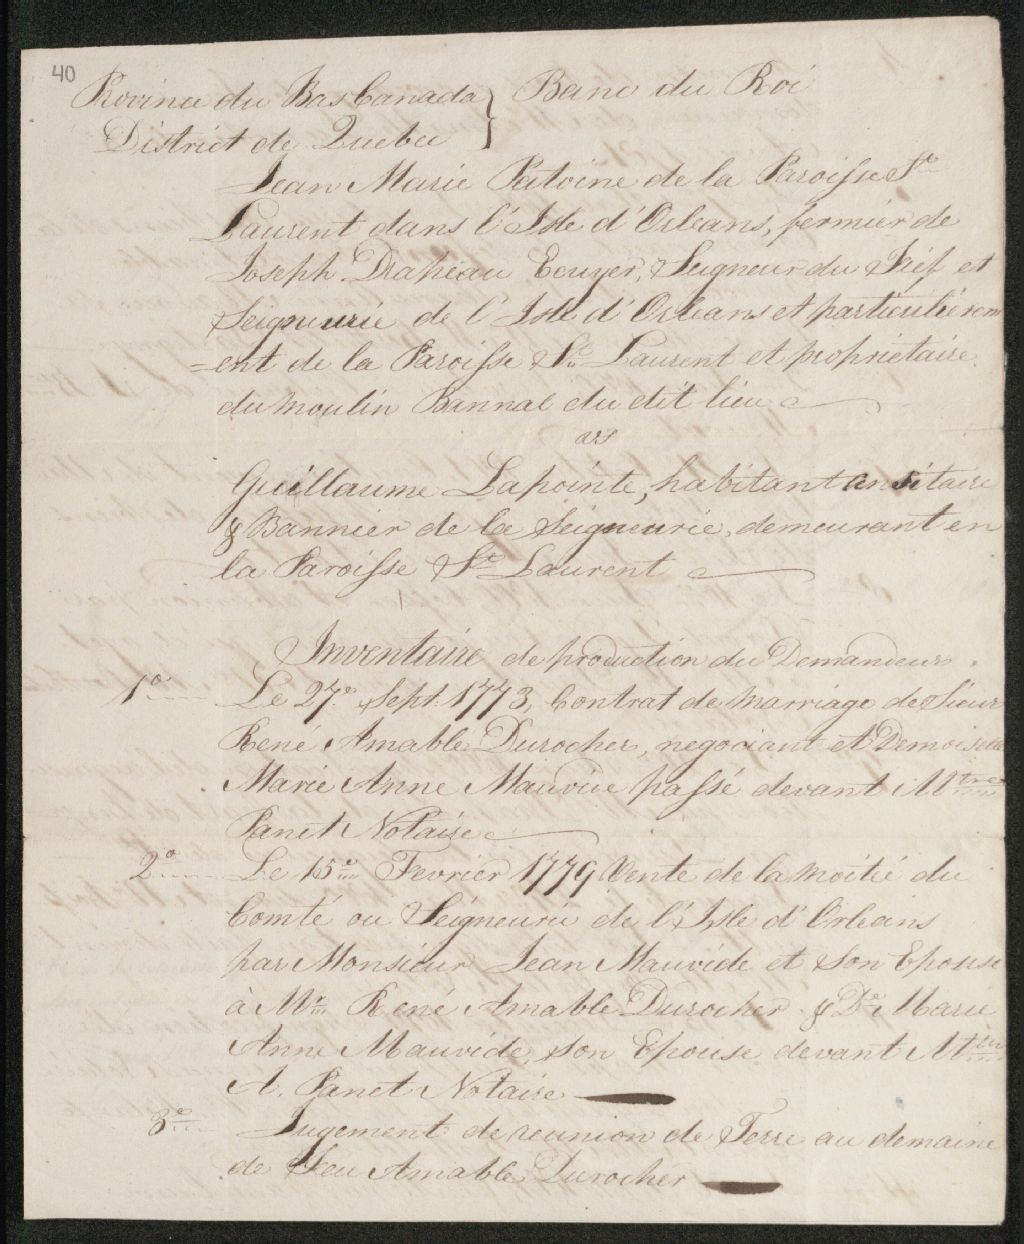 40
Province du Bas Canada } Banc du Roi
District de Quebec
Jean Marie Patoine de la Paroisse St
Laurent dans l'Isle d'Orleans, fermier de
Joseph Drapeau Ecuyer, Seigneur du Fief et
Seigneurie de l'Isle d'Orleans et particuliérem
=ent de la Paroisse St Laurent et proprietaire
du moulin Bannal du dit lieu
vs
Guillaume Lapointe, habitant censitaire
& Bannier de la Seigneurie, demeurant en
la Paroisse St Laurent
Inventaire de production du Demandeur
1o Le 27e Sept. 1773, Contrat de marriage de Sieur
René Amable Durocher, negociant et Demoiselle
Marie Anne Mauvide passé devant Mtre
Panet Notaire
2o Le 15e Fevrier 1779 Vente de la moitié du
Comté ou Seigneurie de l'Isle d'Orleans
par Monsieur Jean Mauvide et son Epouse
à Mr René Amable Durocher & De Marie
Anne Mauvide son Epouse devant Mtre
A. Panet Notaire
3o Jugement de reunion de Terre au demaine
de Feu Amable Durocher